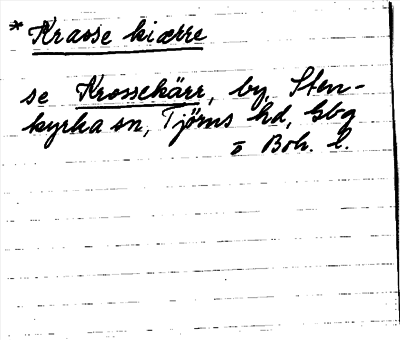 * Krasse kiærre
se Krossekärr, by, Sten-
kyrka sn, Tjörns hd, Gbg
o Boh. l.